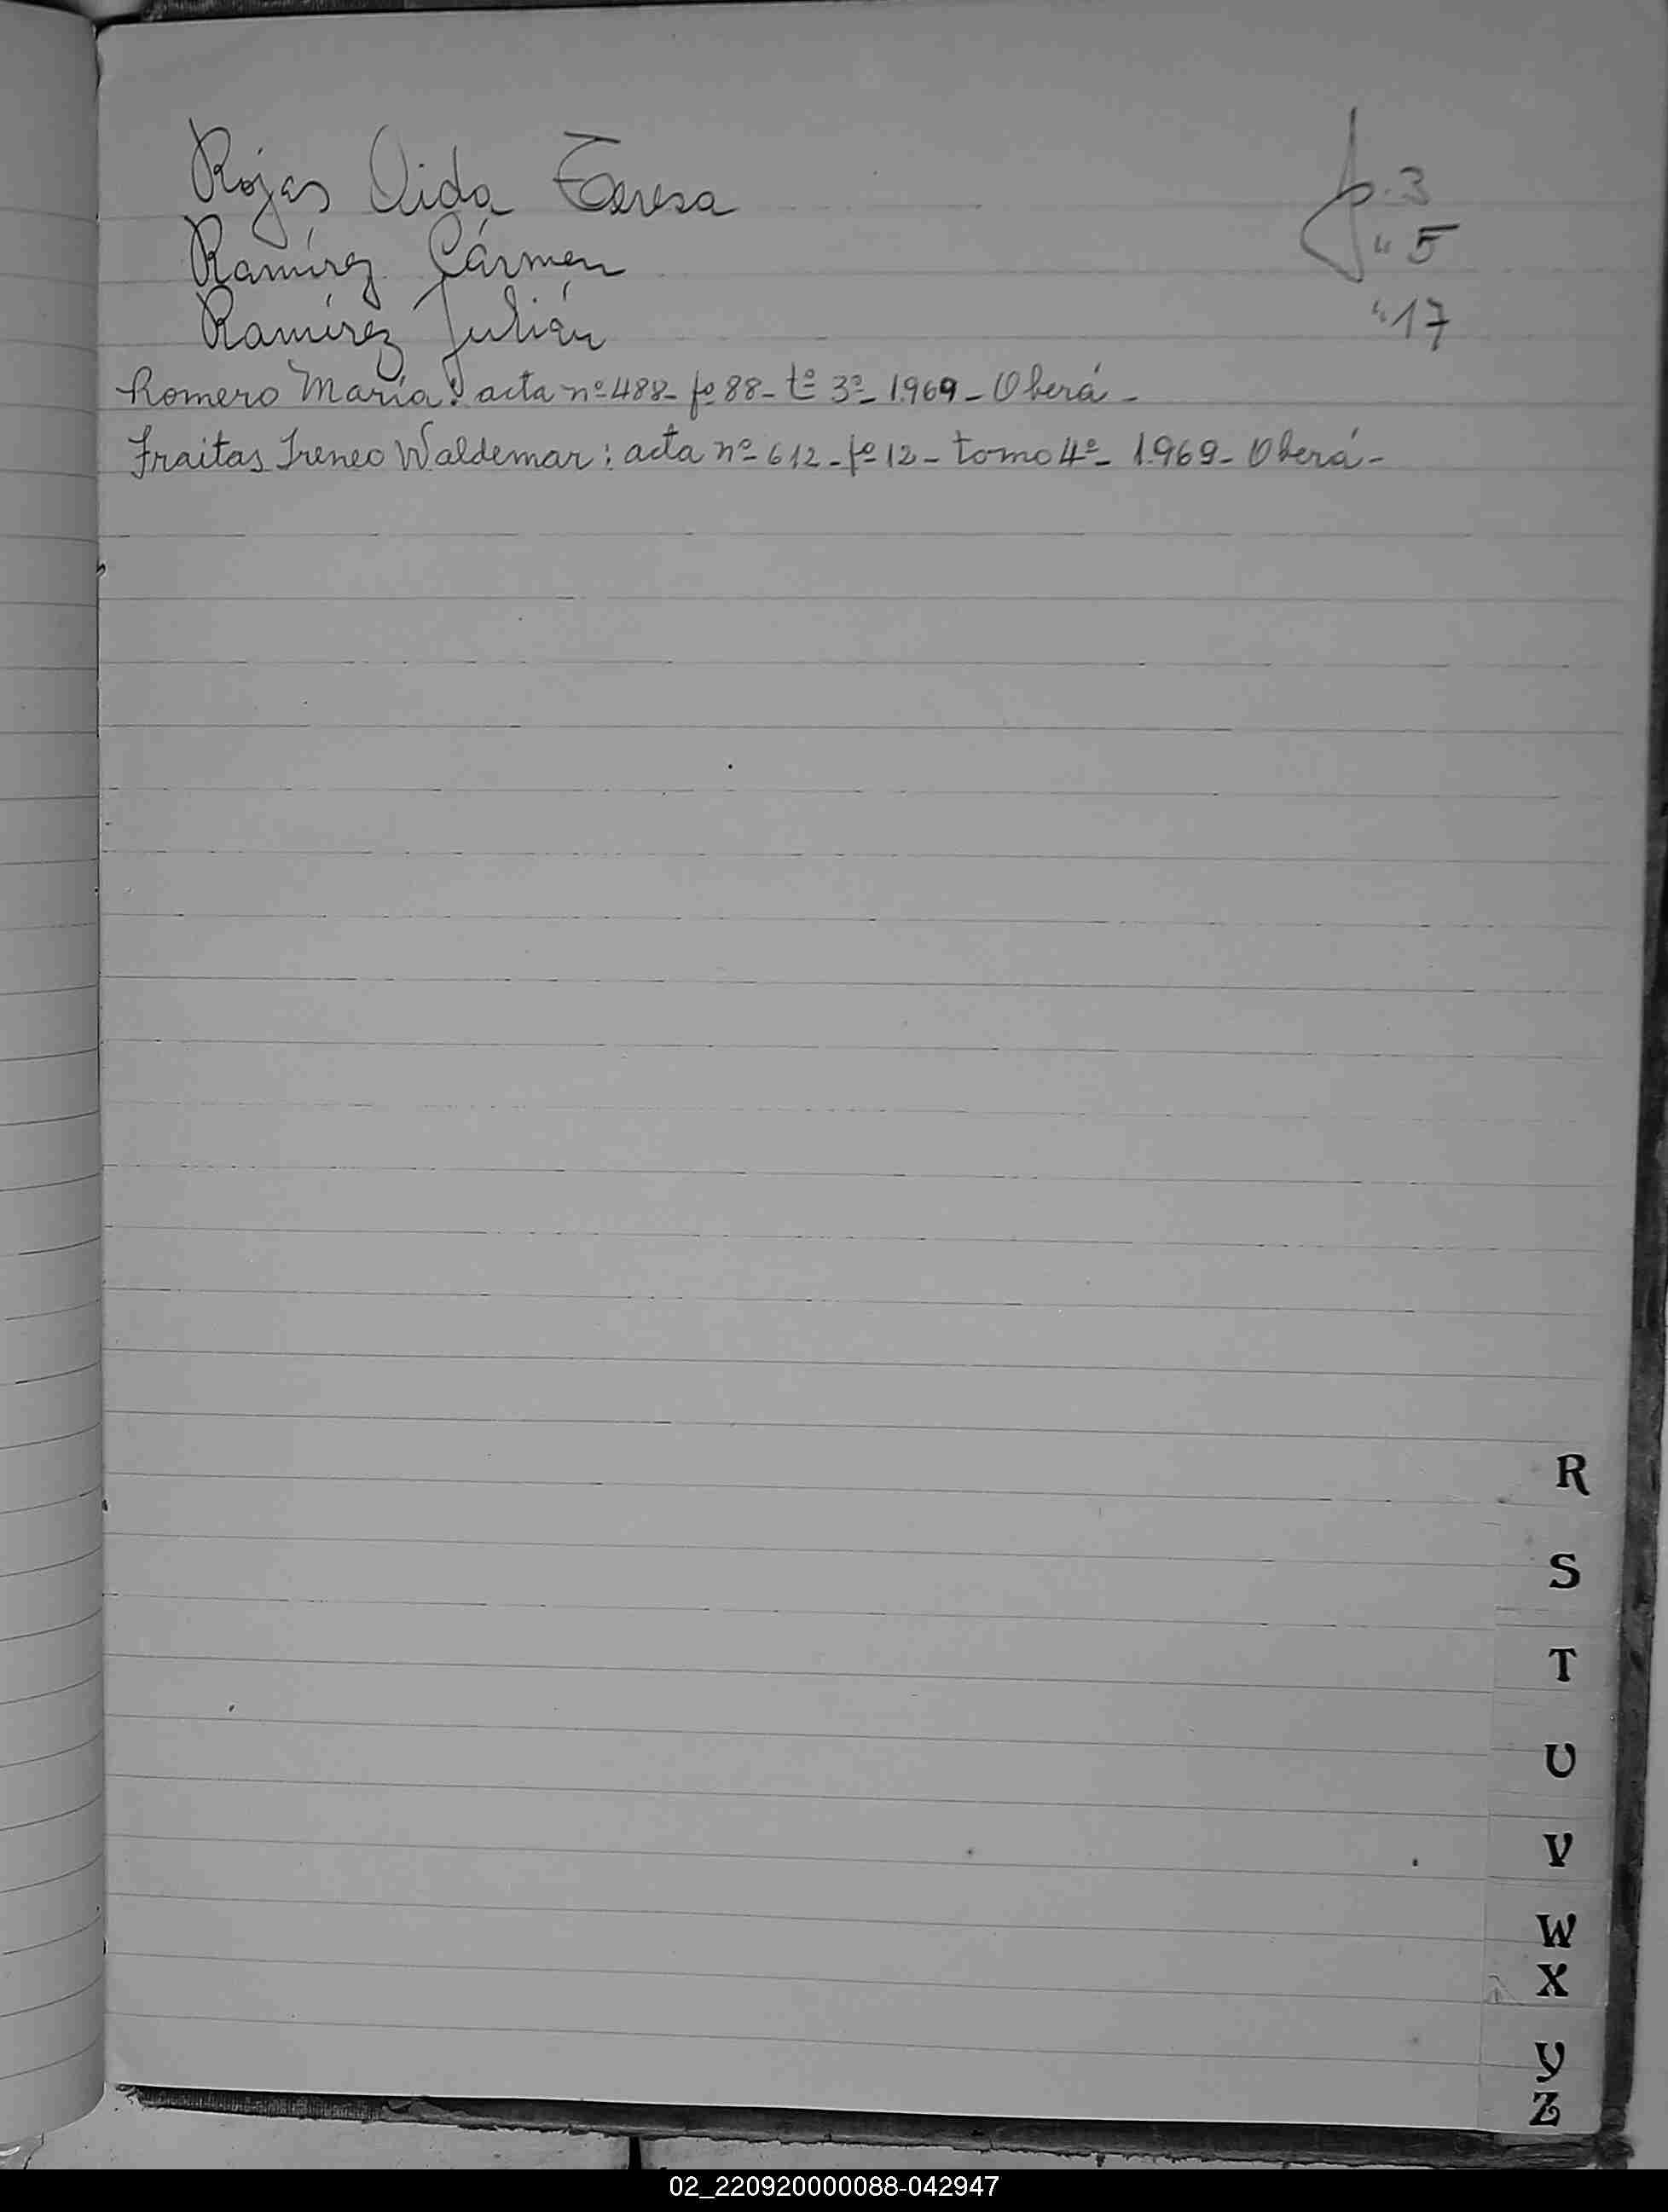 Rojas Aida Teresa f. 3
Ramírez Cármen " 5
Ramírez Julián " 17
Romero María: acta nº 488- fº 88- tº 3º- 1.969- Oberá-
Fraitas Ireneo Waldemar: acta nº 612- fº 12- tomo 4º- 1.969- Oberá-
R
S
T
U
V
W
X
Y
Z
02_220920000088-042947